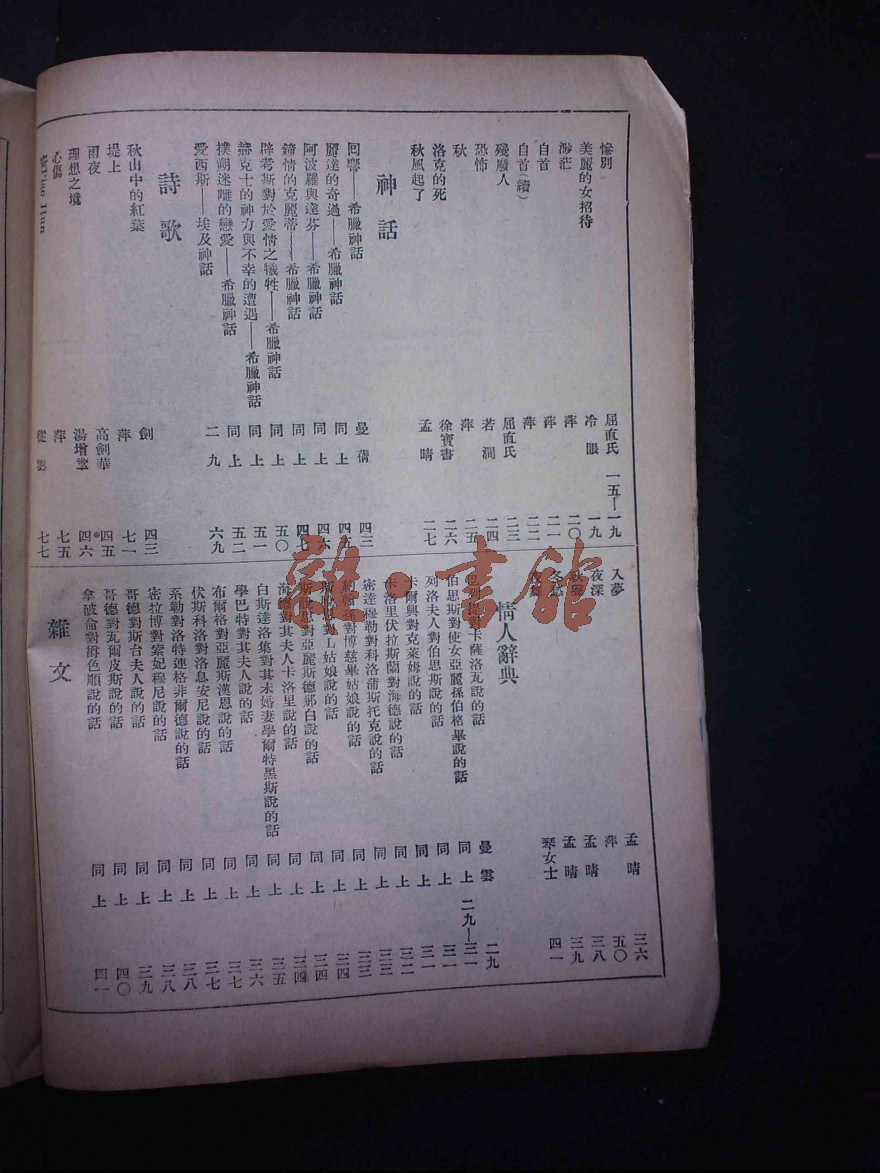 慘別 屈直氏 一五—一九
美麗的女招待 冷眼 一九
渺茫 萍 二〇
自首 萍 二一
自首(續) 萍 二二
殘廢人 屈直氏 二三
恐怖 若澗 二四
秋 萍 二五
洛克的死 徐寶書 二六
秋風起了 孟晴 二七
神話
回響——希臘神話 曼蒨 四三
麗達的奇遇——希臘神話 同上 四五
阿波羅與達芬——希臘神話 同上 四六
鍾情的克麗蒂——希臘神話 同上 四七
辟考斯對於愛情之犧牲——希臘神話 同上 五〇
赫克士的神力與不幸的遭遇——希臘神話 同上 五一
撲朔迷離的戀愛——希臘神話 同上 五二
愛西斯——埃及神話 二九 六九
詩歌
秋山中的紅葉 劍 四三
堤上 萍 七一
雨夜 高劍華 四五
理想之境 湯增敭 四六
心傷 萍 七五
七七
入夢 孟晴 三六
夜深 萍 五〇
孟晴 三八
孟晴 三九
琴女士 四一
情人辭典
對卡薩洛瓦說的話 曼雲 二九
伯思斯對使女亞麗孫伯格畢說的話 同上 二九—三一
列洛夫人對伯思斯說的話 同上 三一
卡爾興對克萊姆說的話 同上 三一
卡洛里伏拉斯蘭對海德說的話 同上 三二
密達穆勒對科洛蒲斯托克說的話 同上 三三
對博慈畢姑娘說的話 同上 三三
對L姑娘說的話 同上 三四
對亞麗斯德那白說的話 同上 三四
海德對其夫人卡洛里說的話 同上 三四
白斯達洛集對其未婚妻學爾特黑斯說的話 同上 三五
學巴特對其夫人說的話 同上 三六
布爾格對亞麗斯漢恩說的話 同上 三七
伏斯科洛對洛息安尼說的話 同上 三七
系勒對洛特連格非爾德說的話 同上 三八
密拉博對索妮穆尼說的話 同上 三八
哥德對斯台夫人說的話 同上 三九
哥德對瓦爾皮斯說的話 同上 四〇
拿破侖對徬色順說的話 同上 四一
雜文
雜·書館